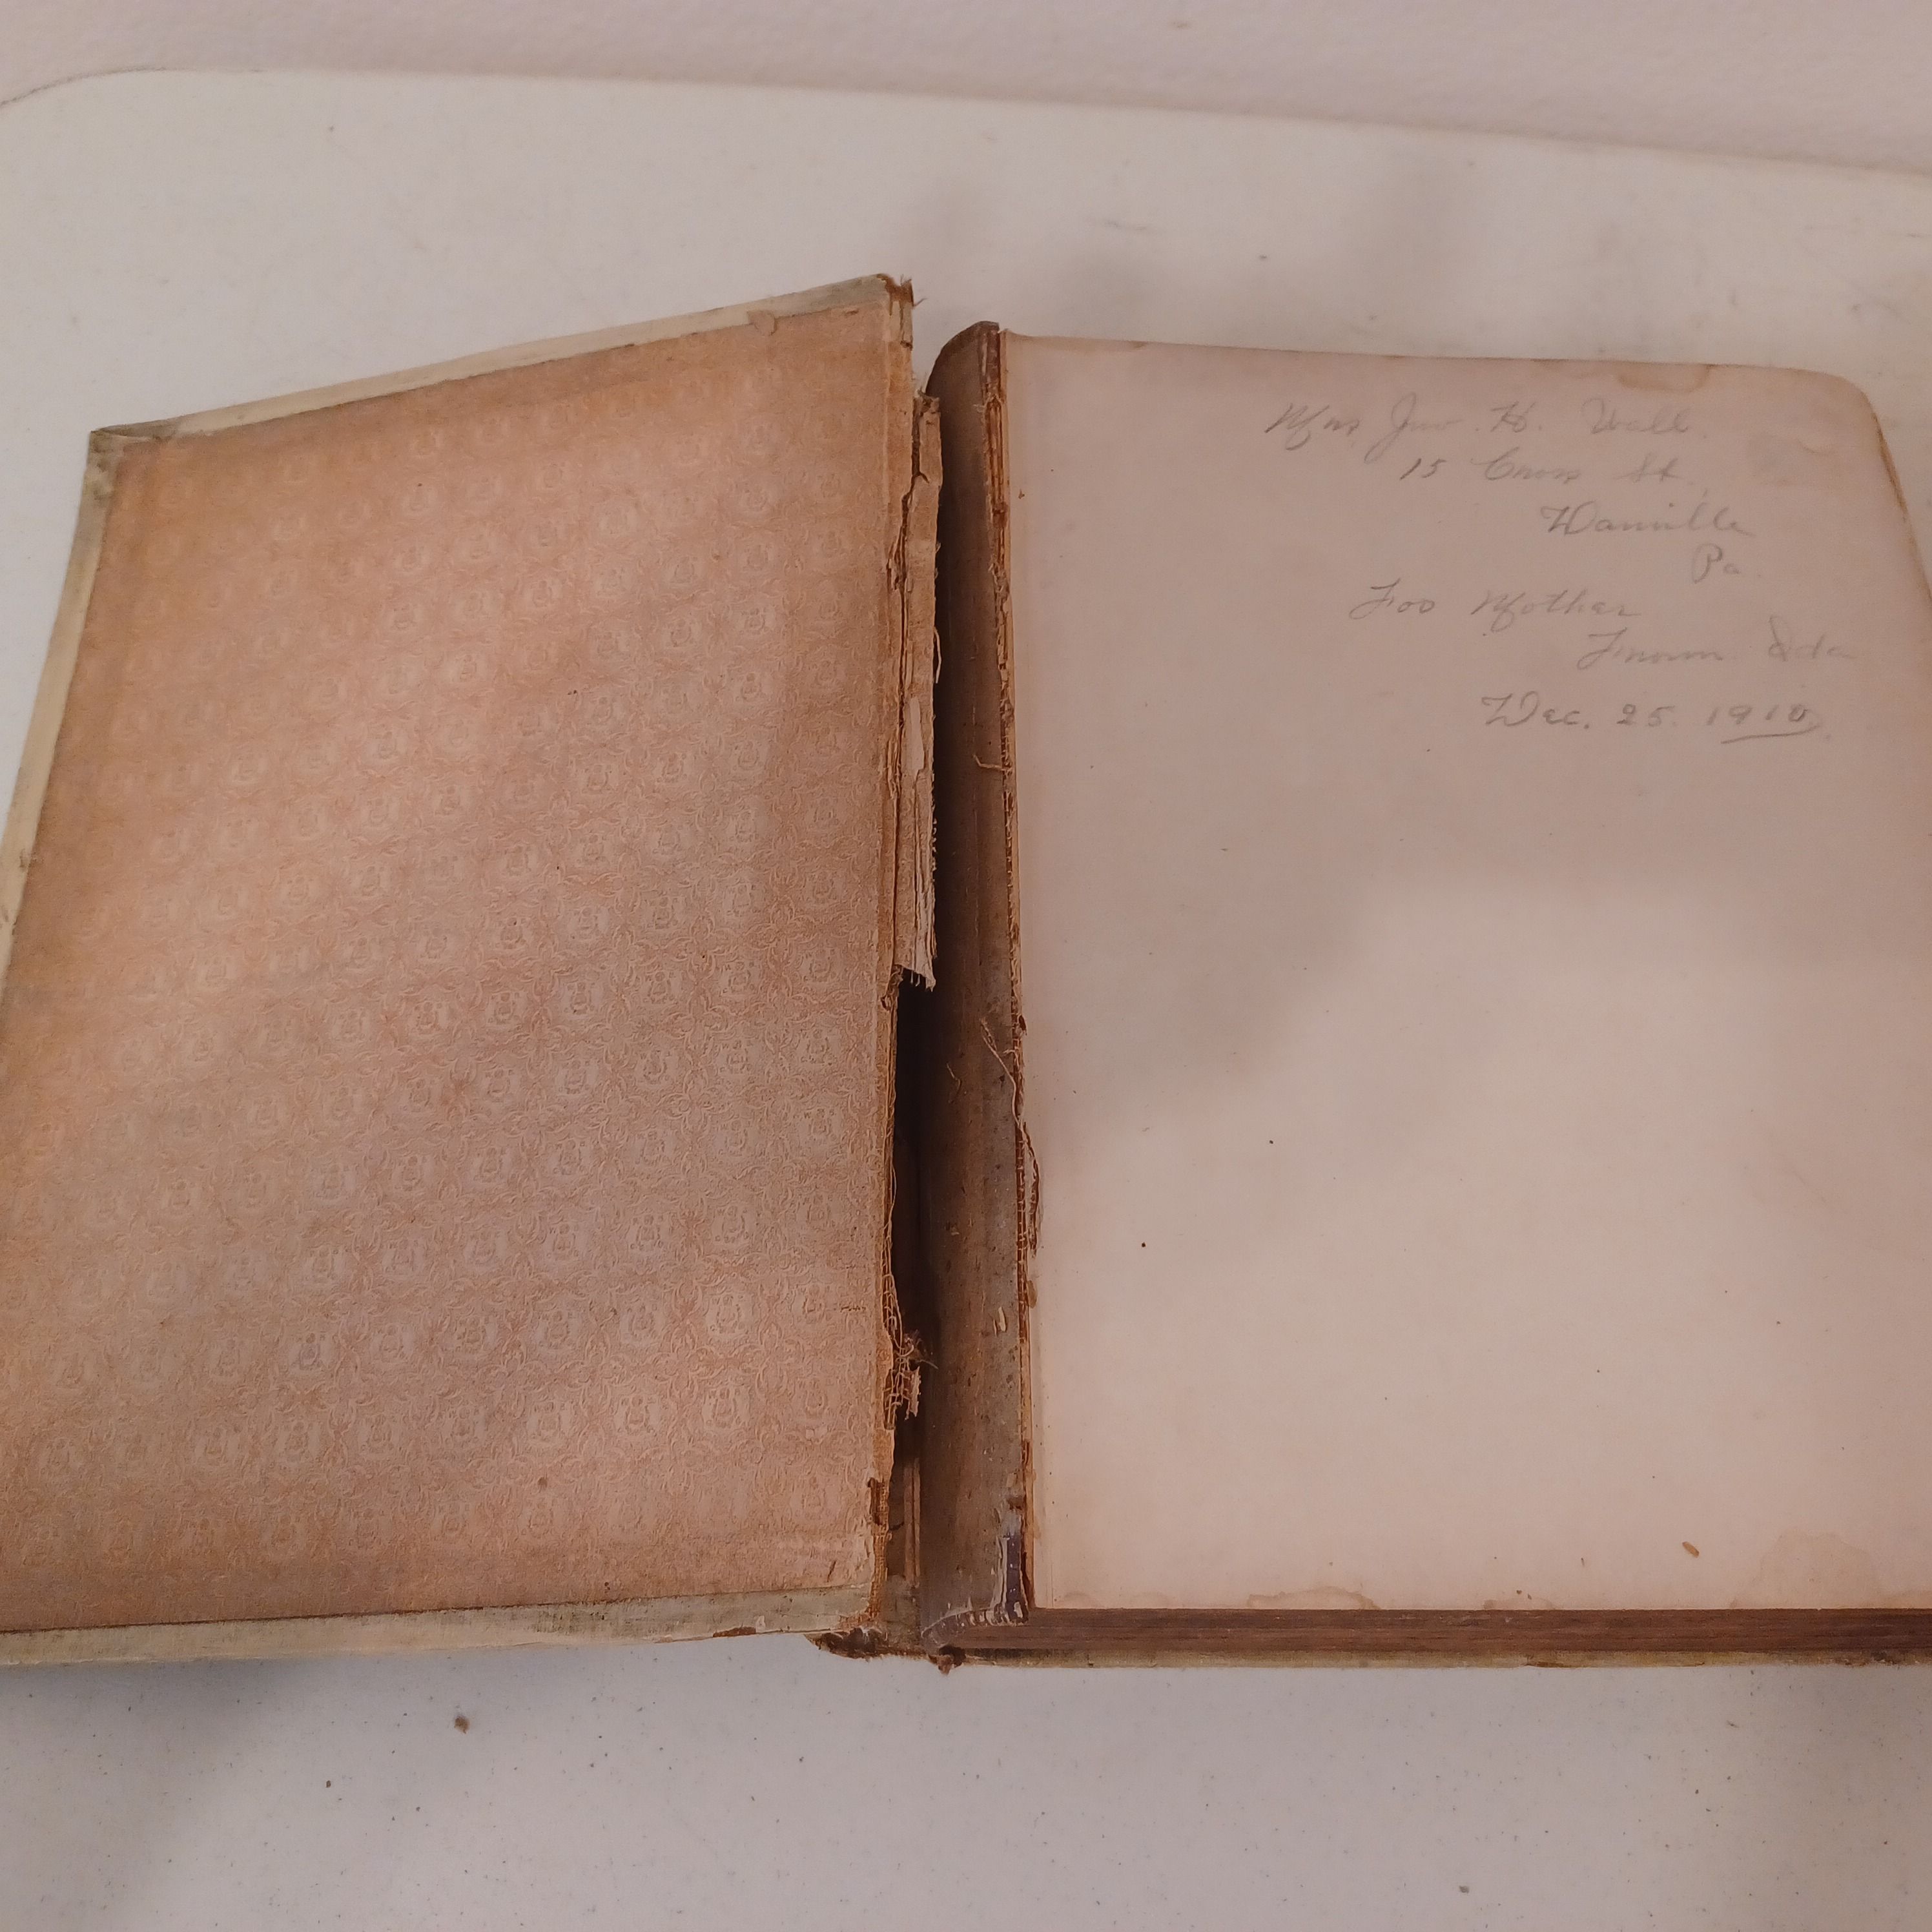 Mrs Jno. H. Wall.
15 Cross St.
Danville
Pa.
For Mother
From Ida
Dec. 25. 1910